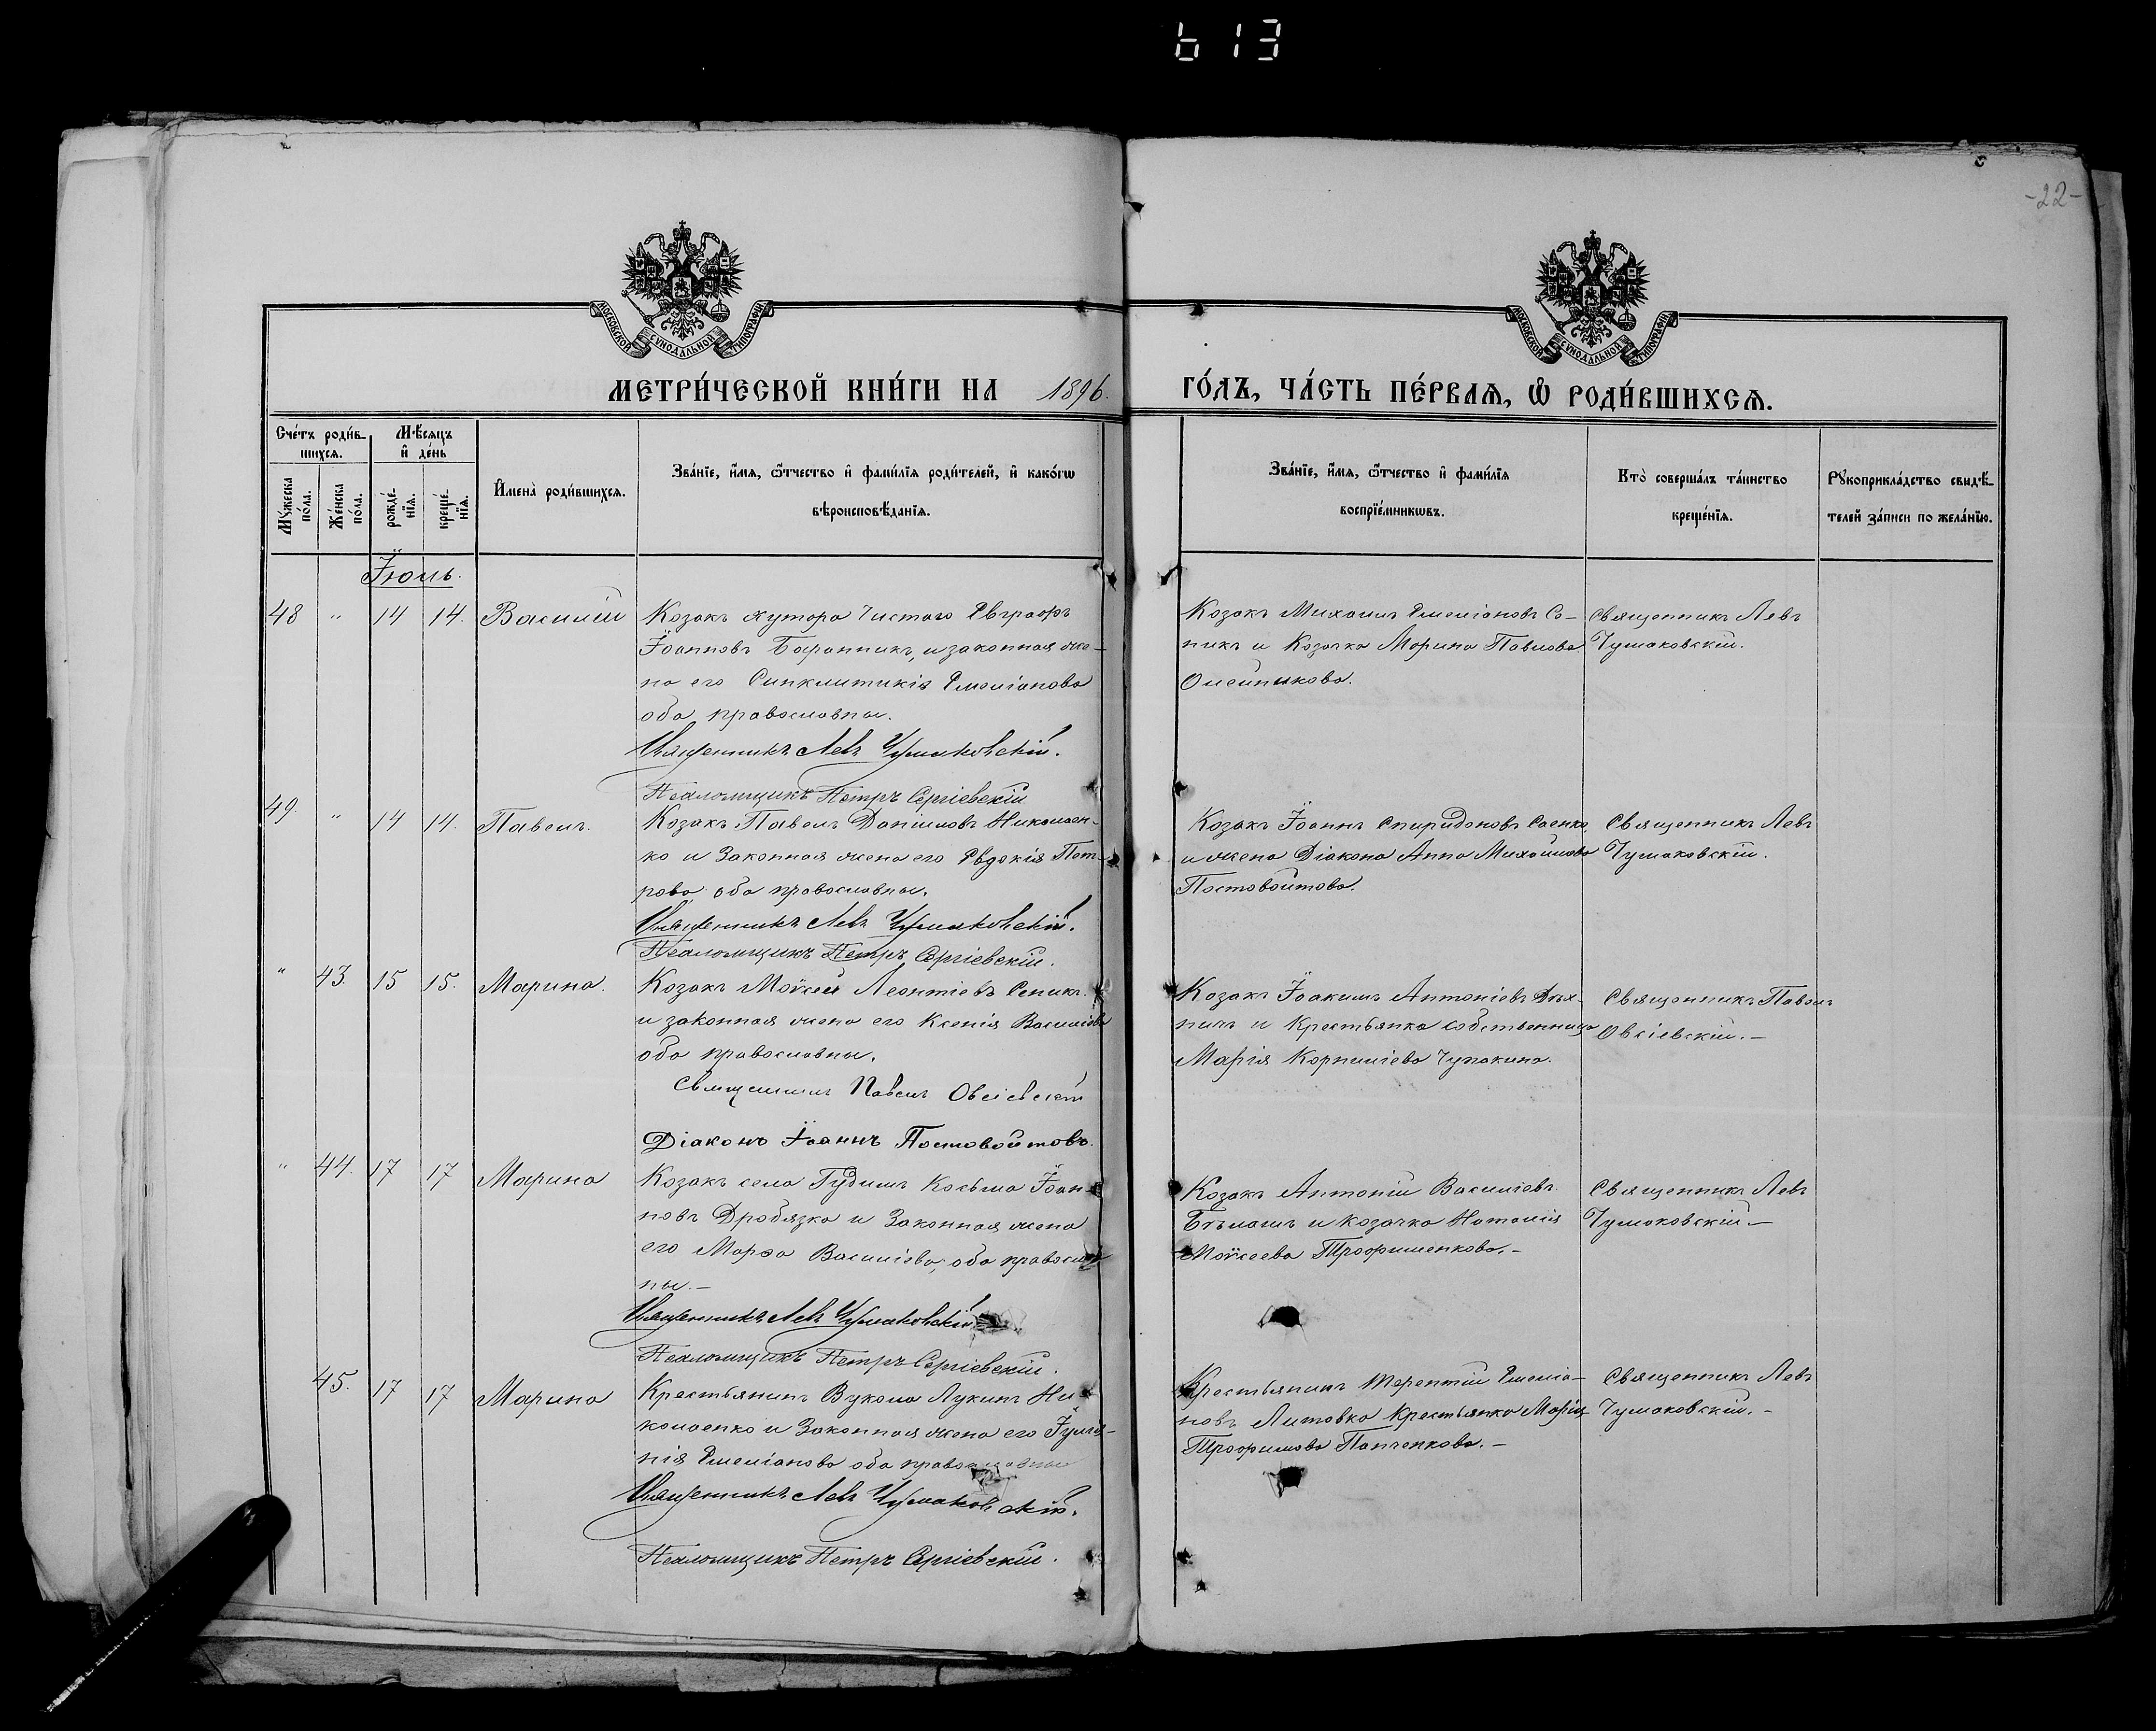 613
-22-
МОСКОВСКОЙ СУНОДАЛЬНОЙ ТИПОГРАФІИ
МОСКОВСКОЙ СУНОДАЛЬНОЙ ТИПОГРАФІИ
МЕТРИ́ЧЕСКОЙ КНИ́ГИ НА 1896. ГО́ДЪ, ЧА́СТЬ ПЕ́РВАѦ, Ѡ҆ РОДИ́ВШИХСѦ.
Сче́тъ роди́в-
шихсѧ.
Мѣ́сѧцъ
и҆ де́нь
Мꙋ́жеска
по́ла.
Же́нска
по́ла.
рожде́-
нїѧ.
креще́-
нїѧ.
И҆мена̀ роди́вшихсѧ.
Зва́нїе, и҆́мѧ, ѻ҆́тчество и҆ фами́лїѧ роди́телей, и҆ како́гѡ
вѣроисповѣ́данїѧ.
Зва́нїе, и҆́мѧ, ѻ҆́тчество и҆ фами́лїѧ
воспрїе́мникѡвъ.
Кто̀ соверша́лъ та́инство
креще́нїѧ.
Рꙋкоприкла́дство свидѣ́-
телей за́писи по жела́нїю.
Іюль.
48 " 14 14. Василій
Козакъ хутора Чистаго Евграфъ
Іоанновъ Баранникъ, и законная же-
на его Синклитикія Емеліанова
оба православны.
Священникъ Левъ Чумаковскій.
Псаломщикъ Петръ Сергіевскій
Козакъ Михаилъ Емеліановъ Со-
никъ и Козачка Марина Павлова
Олейникова.
Священникъ Левъ
Чумаковскій.
49. " 14 14. Павелъ.
Козакъ Павелъ Даніиловъ Николаен-
ко и Законная жена его Евдокія Пет-
рова, оба православны.
Священникъ Левъ Чумаковскій.
Псаломщикъ Петръ Сергіевскій.
Козакъ Іоаннъ Спиридоновъ Саенко
и жена Діакона Анна Михайлова
Постовойтова.
Священникъ Левъ
Чумаковскій.
" 43. 15 15. Марина.
Козакъ Моѵсей Леонтіевъ
и законная жена его Ксенія Василіева
оба православны.
Священникъ Павелъ Овсіевскій
Діаконъ Іоаннъ Постовойтовъ.
Козакъ Іоакимъ Антоніевъ
и Крестьянка собственница
Марія Корниліева Чупакина.
Священникъ Павелъ
Овсіевскій.-
" 44. 17 17 Марина
Козакъ села Гудимъ Косьма Іоан-
новъ Дробязко и Законная жена
его Марѳа Василіева, оба православ
ны.-
Священникъ Левъ Чумаковскій
Псаломщикъ Петръ Сергіевскій.
Козакъ Антоній Василіевъ
и козачка Наталія
Моѵсеева Трофименкова.-
Священникъ Левъ
Чумаковскій.-
45. 17 17 Марина
Крестьянинъ Вукола Лукинъ Ни-
колаенко и Законная жена его Іуліа-
нія Емеліанова оба православны
Священникъ Левъ Чумаковскій.
Псаломщикъ Петръ Сергіевскій.
Крестьянинъ Терентій Емеліа-
новъ Литовка Крестьянка Марія
Трофимова Панченкова.-
Священникъ Левъ
Чумаковскій.-